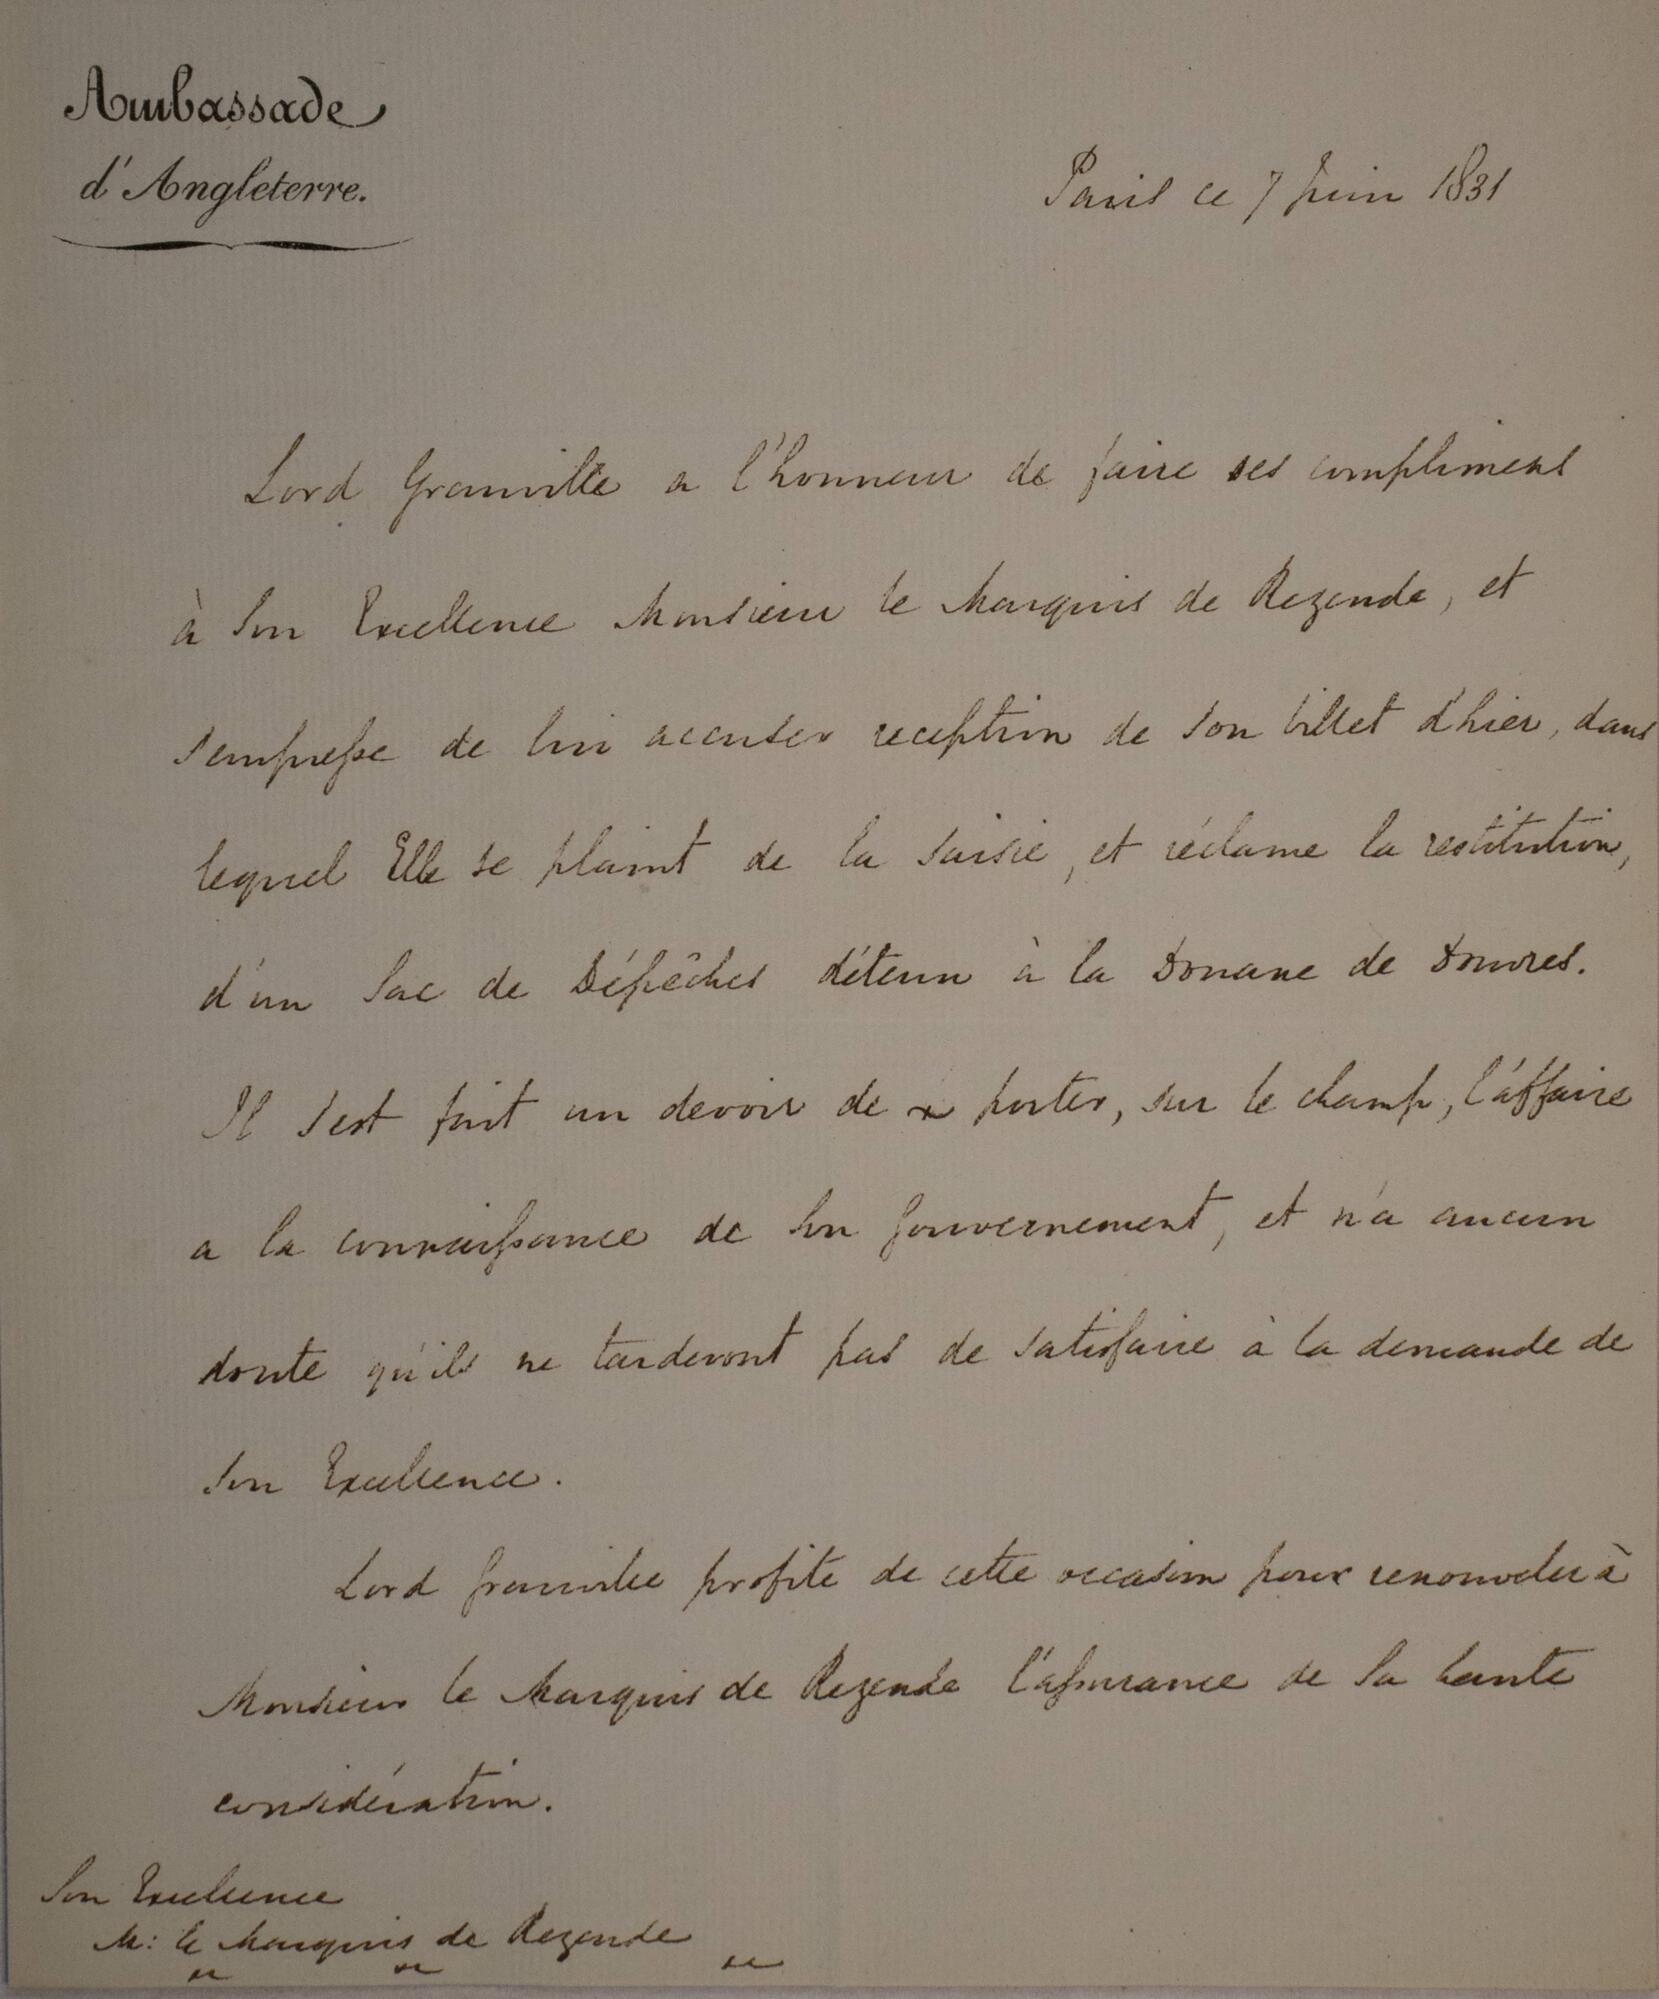 Ambassade
d'Angleterre.
Paris ce 7 Juin 1831
Lord Granville a l'honneur de faire ses compliments
à Son Excellence Monsieur le Marquis de Rezende, et
s'empresse de lui accuser reception de Son billet d'hier, dans
lequel Elle se plaint de la saisie, et réclame la restitution,
d'un Sac de Dépêches détenu à la Douane de Douvres.
Il s'est fait un devoir de porter, sur le champ, l'affaire
a la connaissance de Son Gouvernement, et n'a aucun
doute qu'ils ne tarderont pas de satisfaire à la demande de
Son Excellence.
Lord Granville profite de cette occasion pour renouveler à
Monsieur le Marquis de Rezende l'assurance de Sa haute
considération.
Son Excellence
M: le Marquis de Rezende